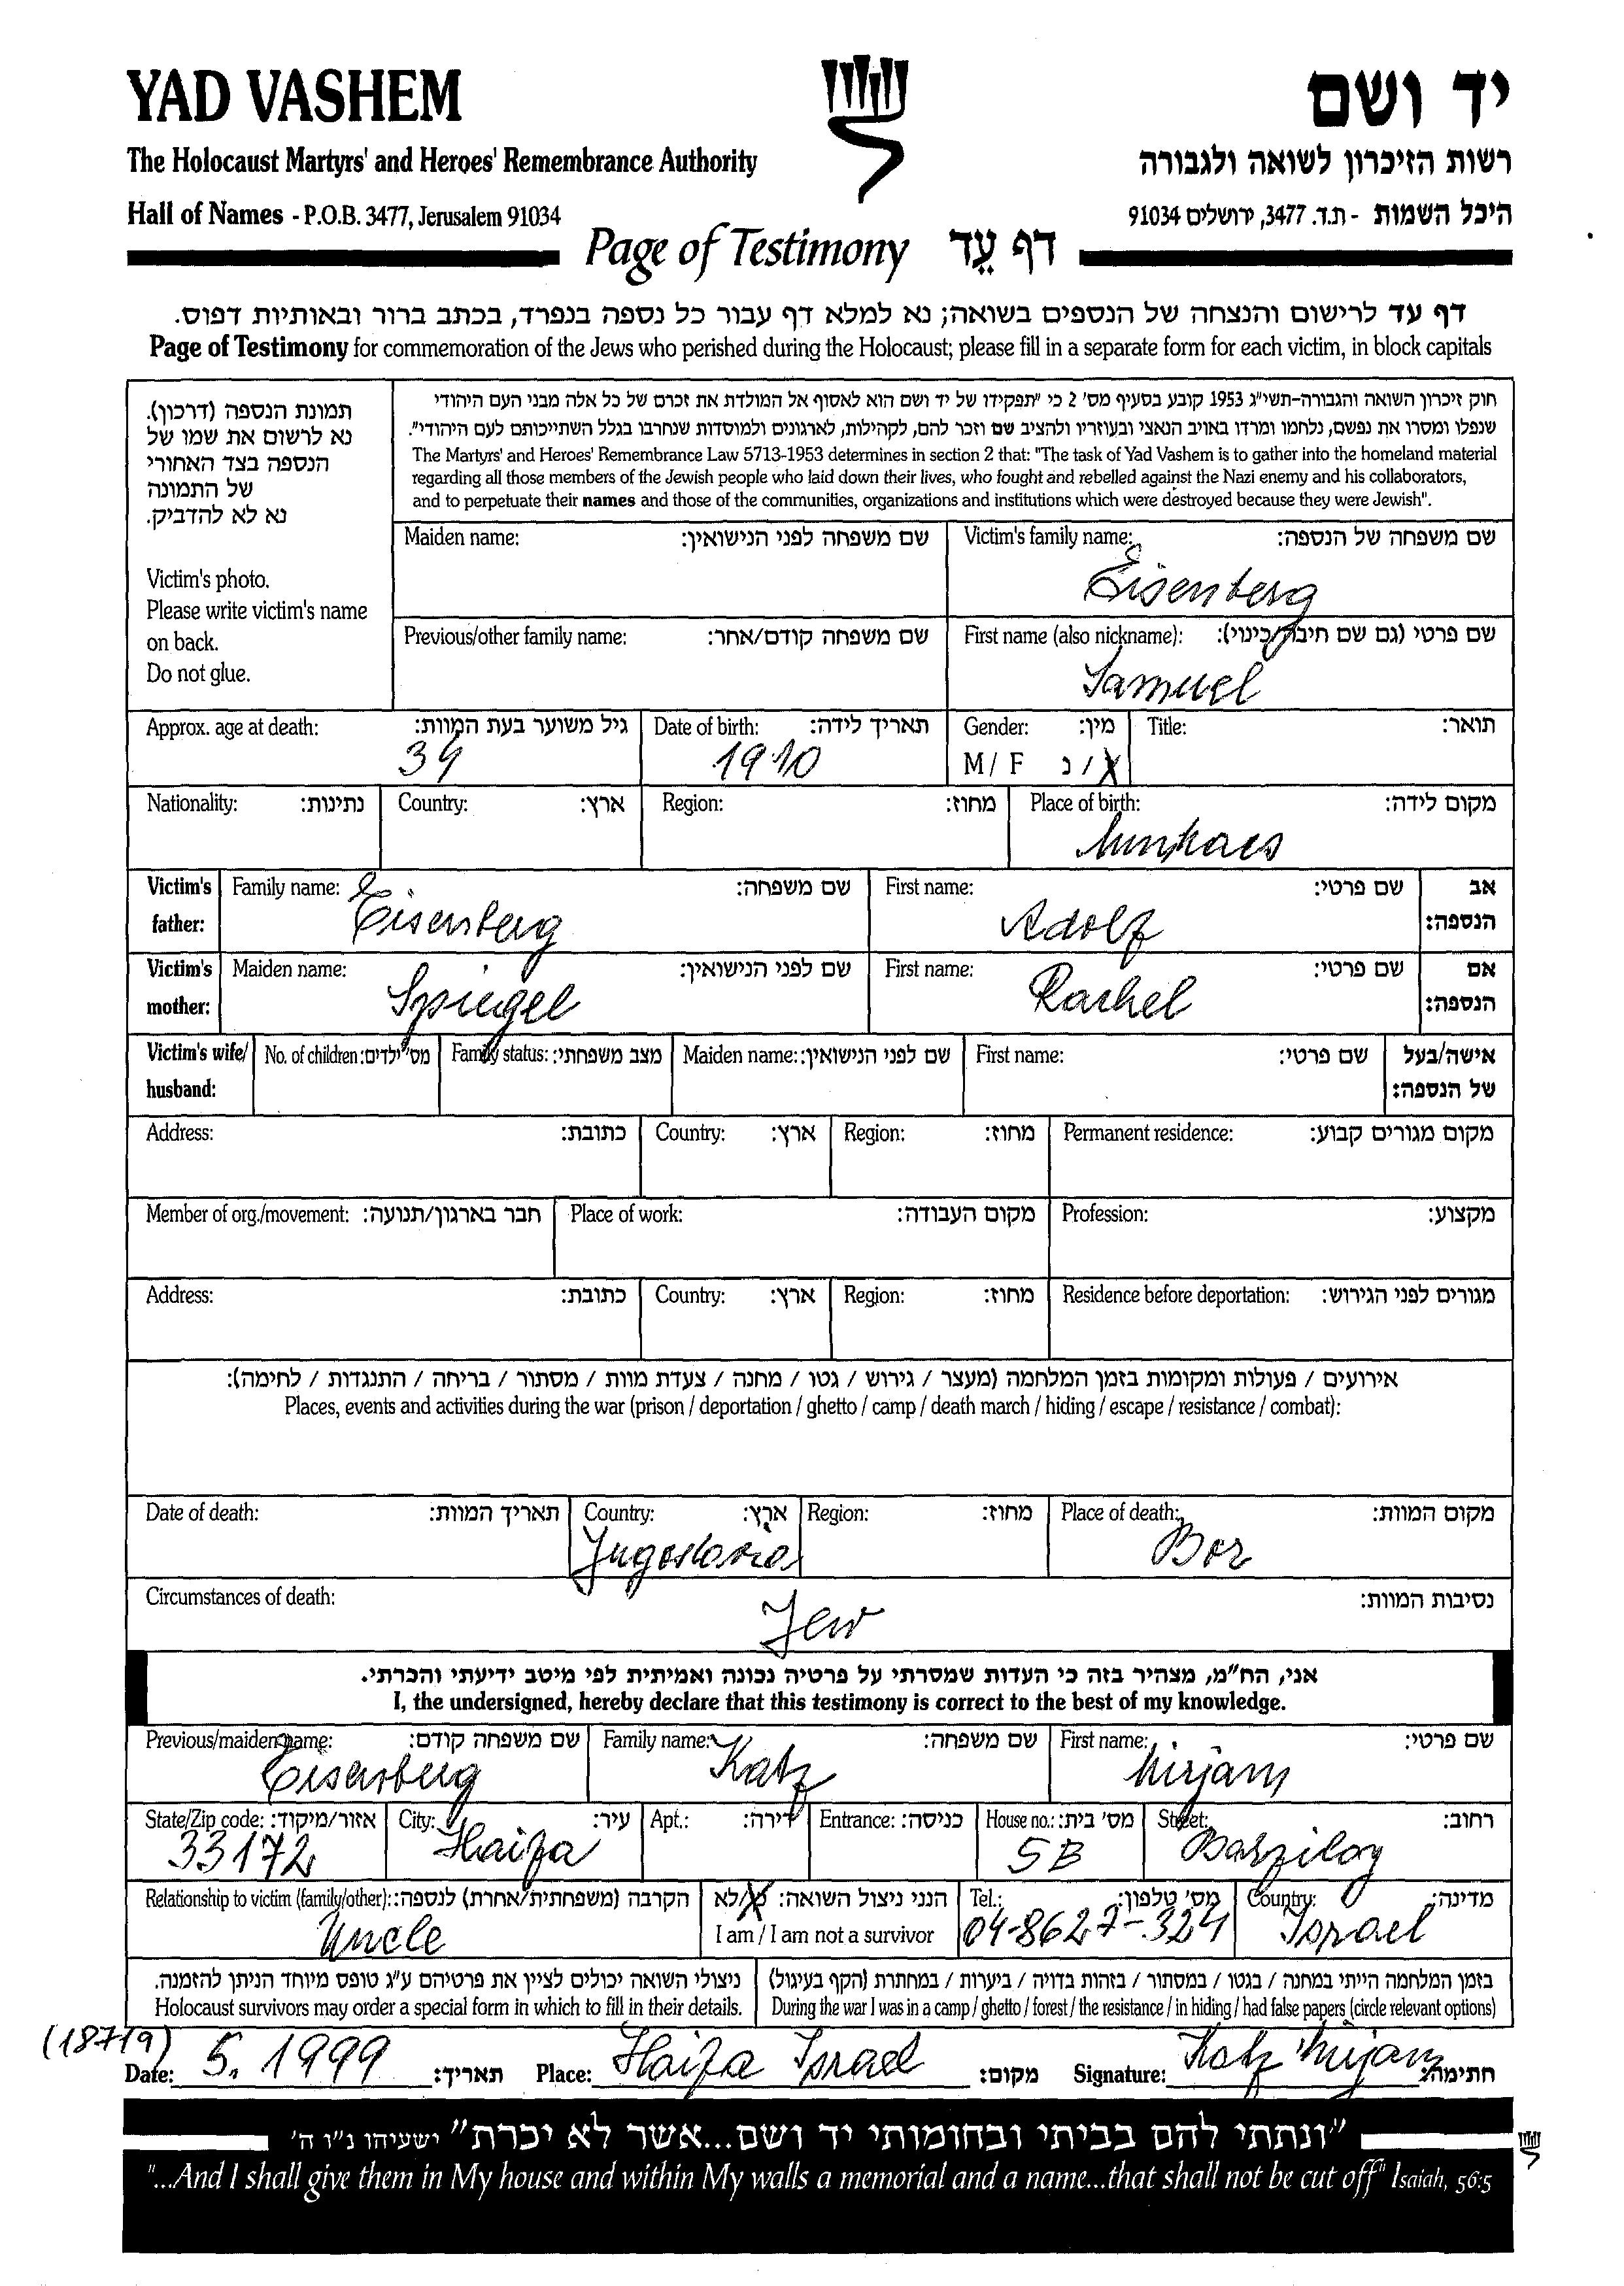 YAD VASHEM
יד ושם
The Holocaust Martyrs' and Heroes' Remembrance Authority
רשות הזיכרון לשואה ולגבורה
Hall of Names - P.O.B. 3477, Jerusalem 91034
היכל השמות - ת.ד. 3477, ירושלים 91034
Page of Testimony דף עֵד
דף עד לרישום והנצחה של הנספים בשואה; נא למלא דף עבור כל נספה בנפרד, בכתב ברור ובאותיות דפוס.
Page of Testimony for commemoration of the Jews who perished during the Holocaust; please fill in a separate form for each victim, in block capitals
תמונת הנספה (דרכון).
נא לרשום את שמו של
הנספה בצד האחורי
של התמונה
נא לא להדביק.
Victim's photo.
Please write victim's name
on back.
Do not glue.
חוק זיכרון השואה והגבורה-תשי"ג 1953 קובע בסעיף מס' 2 כי "תפקידו של יד ושם הוא לאסוף אל המולדת את זכרם של כל אלה מבני העם היהודי
שנפלו ומסרו את נפשם, נלחמו ומרדו באויב הנאצי ובעוזריו ולהציב שם וזכר להם, לקהילות, לארגונים ולמוסדות שנחרבו בגלל השתייכותם לעם היהודי".
The Martyrs' and Heroes' Remembrance Law 5713-1953 determines in section 2 that: "The task of Yad Vashem is to gather into the homeland material
regarding all those members of the Jewish people who laid down their lives, who fought and rebelled against the Nazi enemy and his collaborators,
and to perpetuate their names and those of the communities, organizations and institutions which were destroyed because they were Jewish".
Maiden name: שם משפחה לפני הנישואין:
Victim's family name: שם משפחה של הנספה:
Eisenberg
Previous/other family name: שם משפחה קודם/אחר:
First name (also nickname): שם פרטי (גם שם חיבה/כינוי):
Samuel
Approx. age at death: גיל משוער בעת המוות:
34
Date of birth: תאריך לידה:
1910
Gender: מין:
M / F ז / נ
Title: תואר:
Nationality: נתינות:
Country: ארץ:
Region: מחוז:
Place of birth: מקום לידה:
Munkacs
Victim's father: Family name: שם משפחה:
Eisenberg
First name: שם פרטי: אב הנספה:
Adolf
Victim's mother: Maiden name: שם לפני הנישואין:
Spiegel
First name: שם פרטי: אם הנספה:
Rachel
Victim's wife/ husband: No. of children: מס' ילדים: Family status: מצב משפחתי: Maiden name: שם לפני הנישואין: First name: שם פרטי: אישה/בעל של הנספה:
Address: כתובת: Country: ארץ: Region: מחוז: Permanent residence: מקום מגורים קבוע:
Member of org./movement: חבר בארגון/תנועה: Place of work: מקום העבודה: Profession: מקצוע:
Address: כתובת: Country: ארץ: Region: מחוז: Residence before deportation: מגורים לפני הגירוש:
אירועים / פעולות ומקומות בזמן המלחמה (מעצר / גירוש / גטו / מחנה / צעדת מוות / מסתור / בריחה / התנגדות / לחימה):
Places, events and activities during the war (prison / deportation / ghetto / camp / death march / hiding / escape / resistance / combat):
Date of death: תאריך המוות: Country: ארץ: Region: מחוז: Place of death: מקום המוות:
Jugoslavia Bor
Circumstances of death: נסיבות המוות:
Jew
אני, הח"מ, מצהיר בזה כי העדות שמסרתי על פרטיה נכונה ואמיתית לפי מיטב ידיעתי והכרתי.
I, the undersigned, hereby declare that this testimony is correct to the best of my knowledge.
Previous/maiden name: שם משפחה קודם: Family name: שם משפחה: First name: שם פרטי:
Eisenberg Katz Mirjam
State/Zip code: אזור/מיקוד: City: עיר: Apt.: דירה: Entrance: כניסה: House no.: מס' בית: Street: רחוב:
33172 Haifa 5B Barzilay
Relationship to victim (family/other): הקרבה (משפחתית/אחרת) לנספה: הנני ניצול השואה: כן/לא Tel.: מס' טלפון: Country: מדינה:
Uncle I am / I am not a survivor 04-8627-324 Israel
ניצולי השואה יכולים לציין את פרטיהם ע"ג טופס מיוחד הניתן להזמנה.
Holocaust survivors may order a special form in which to fill in their details.
בזמן המלחמה הייתי במחנה / בגטו / במסתור / בזהות בדויה / ביערות / במחתרת (הקף בעיגול)
During the war I was in a camp / ghetto / forest / the resistance / in hiding / had false papers (circle relevant options)
(18719)
Date: 5. 1999 תאריך: Place: Haifa Israel מקום: Signature: Katz Mirjam חתימה:
"ונתתי להם בביתי ובחומותי יד ושם...אשר לא יכרת" ישעיהו נ"ו ה'
"...And I shall give them in My house and within My walls a memorial and a name...that shall not be cut off" Isaiah, 56:5